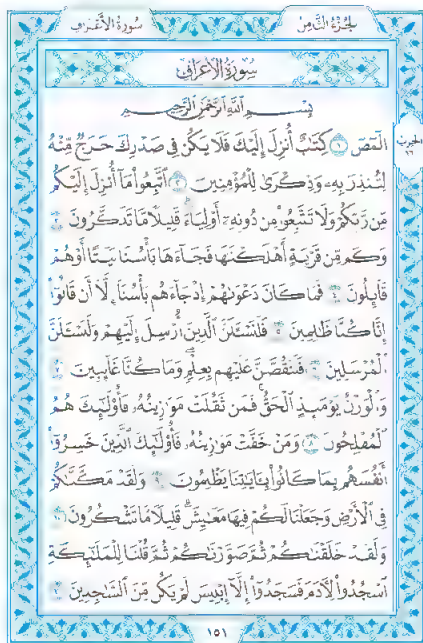 سُورَةُ الْأَعْرَافِ
الجُزْءُ الثَّامِنُ
سُورَةُ الْأَعْرَافِ
بِسْمِ اللَّهِ الرَّحْمَٰنِ الرَّحِيمِ
الٓمٓصٓ ١ كِتَٰبٌ أُنزِلَ إِلَيْكَ فَلَا يَكُن فِى صَدْرِكَ حَرَجٌ مِّنْهُ
لِتُنذِرَ بِهِۦ وَذِكْرَىٰ لِلْمُؤْمِنِينَ ٢ ٱتَّبِعُوا۟ مَآ أُنزِلَ إِلَيْكُم
مِّن رَّبِّكُمْ وَلَا تَتَّبِعُوا۟ مِن دُونِهِۦٓ أَوْلِيَآءَ ۗ قَلِيلًا مَّا تَذَكَّرُونَ ٣
وَكَم مِّن قَرْيَةٍ أَهْلَكْنَٰهَا فَجَآءَهَا بَأْسُنَا بَيَٰتًا أَوْ هُمْ
قَآئِلُونَ ٤ فَمَا كَانَ دَعْوَىٰهُمْ إِذْ جَآءَهُم بَأْسُنَآ إِلَّآ أَن قَالُوٓا۟
إِنَّا كُنَّا ظَٰلِمِينَ ٥ فَلَنَسْـَٔلَنَّ ٱلَّذِينَ أُرْسِلَ إِلَيْهِمْ وَلَنَسْـَٔلَنَّ
ٱلْمُرْسَلِينَ ٦ فَلَنَقُصَّنَّ عَلَيْهِم بِعِلْمٍ ۖ وَمَا كُنَّا غَآئِبِينَ ٧
وَٱلْوَزْنُ يَوْمَئِذٍ ٱلْحَقُّ ۚ فَمَن ثَقُلَتْ مَوَٰزِينُهُۥ فَأُو۟لَٰٓئِكَ هُمُ
ٱلْمُفْلِحُونَ ٨ وَمَنْ خَفَّتْ مَوَٰزِينُهُۥ فَأُو۟لَٰٓئِكَ ٱلَّذِينَ خَسِرُوٓا۟
أَنفُسَهُم بِمَا كَانُوا۟ بِـَٔايَٰتِنَا يَظْلِمُونَ ٩ وَلَقَدْ مَكَّنَّٰكُمْ
فِى ٱلْأَرْضِ وَجَعَلْنَا لَكُمْ فِيهَا مَعَٰيِشَ ۗ قَلِيلًا مَّا تَشْكُرُونَ ١٠
وَلَقَدْ خَلَقْنَٰكُمْ ثُمَّ صَوَّرْنَٰكُمْ ثُمَّ قُلْنَا لِلْمَلَٰٓئِكَةِ
ٱسْجُدُوا۟ لِـَٔادَمَ فَسَجَدُوٓا۟ إِلَّآ إِبْلِيسَ لَمْ يَكُن مِّنَ ٱلسَّٰجِدِينَ ١١
١٥١